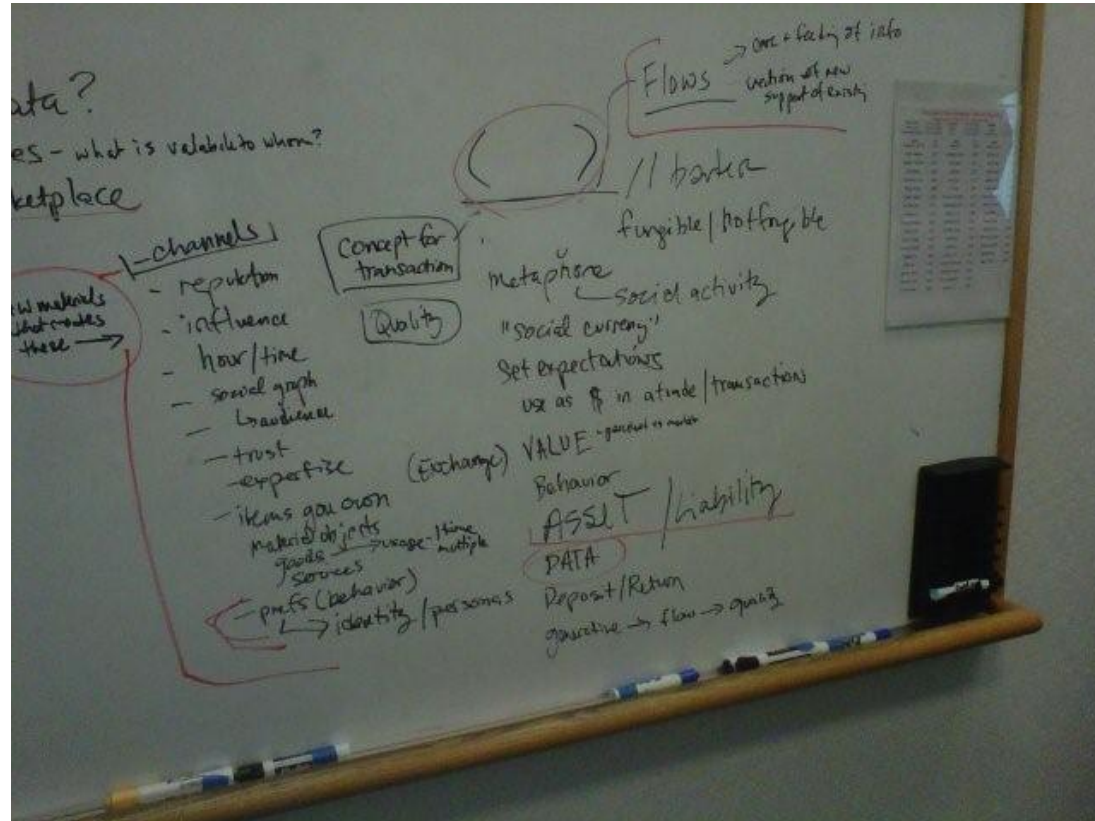 ata?
es - what is valuable to whom?
ketplace
w materials
that creates
these →
- channels
- reputation
- influence
- hour/time
- social graph
↳ audience
- trust
- expertise
- items you own
material objects
goods → usage - 1 time
multiple
services
- prefs (behavior)
↳ identity/personas
Concept for
transaction
Quality
(Exchange)
Flows
→ care + feeding of info
creation of new
support of existing
// barter
fungible/notfungible
metaphore
social activity
"social currency"
Set expectations
use as $ in a trade/transactions
VALUE
Behavior
ASSET / liability
DATA
Deposit/Return
generative → flow → quality